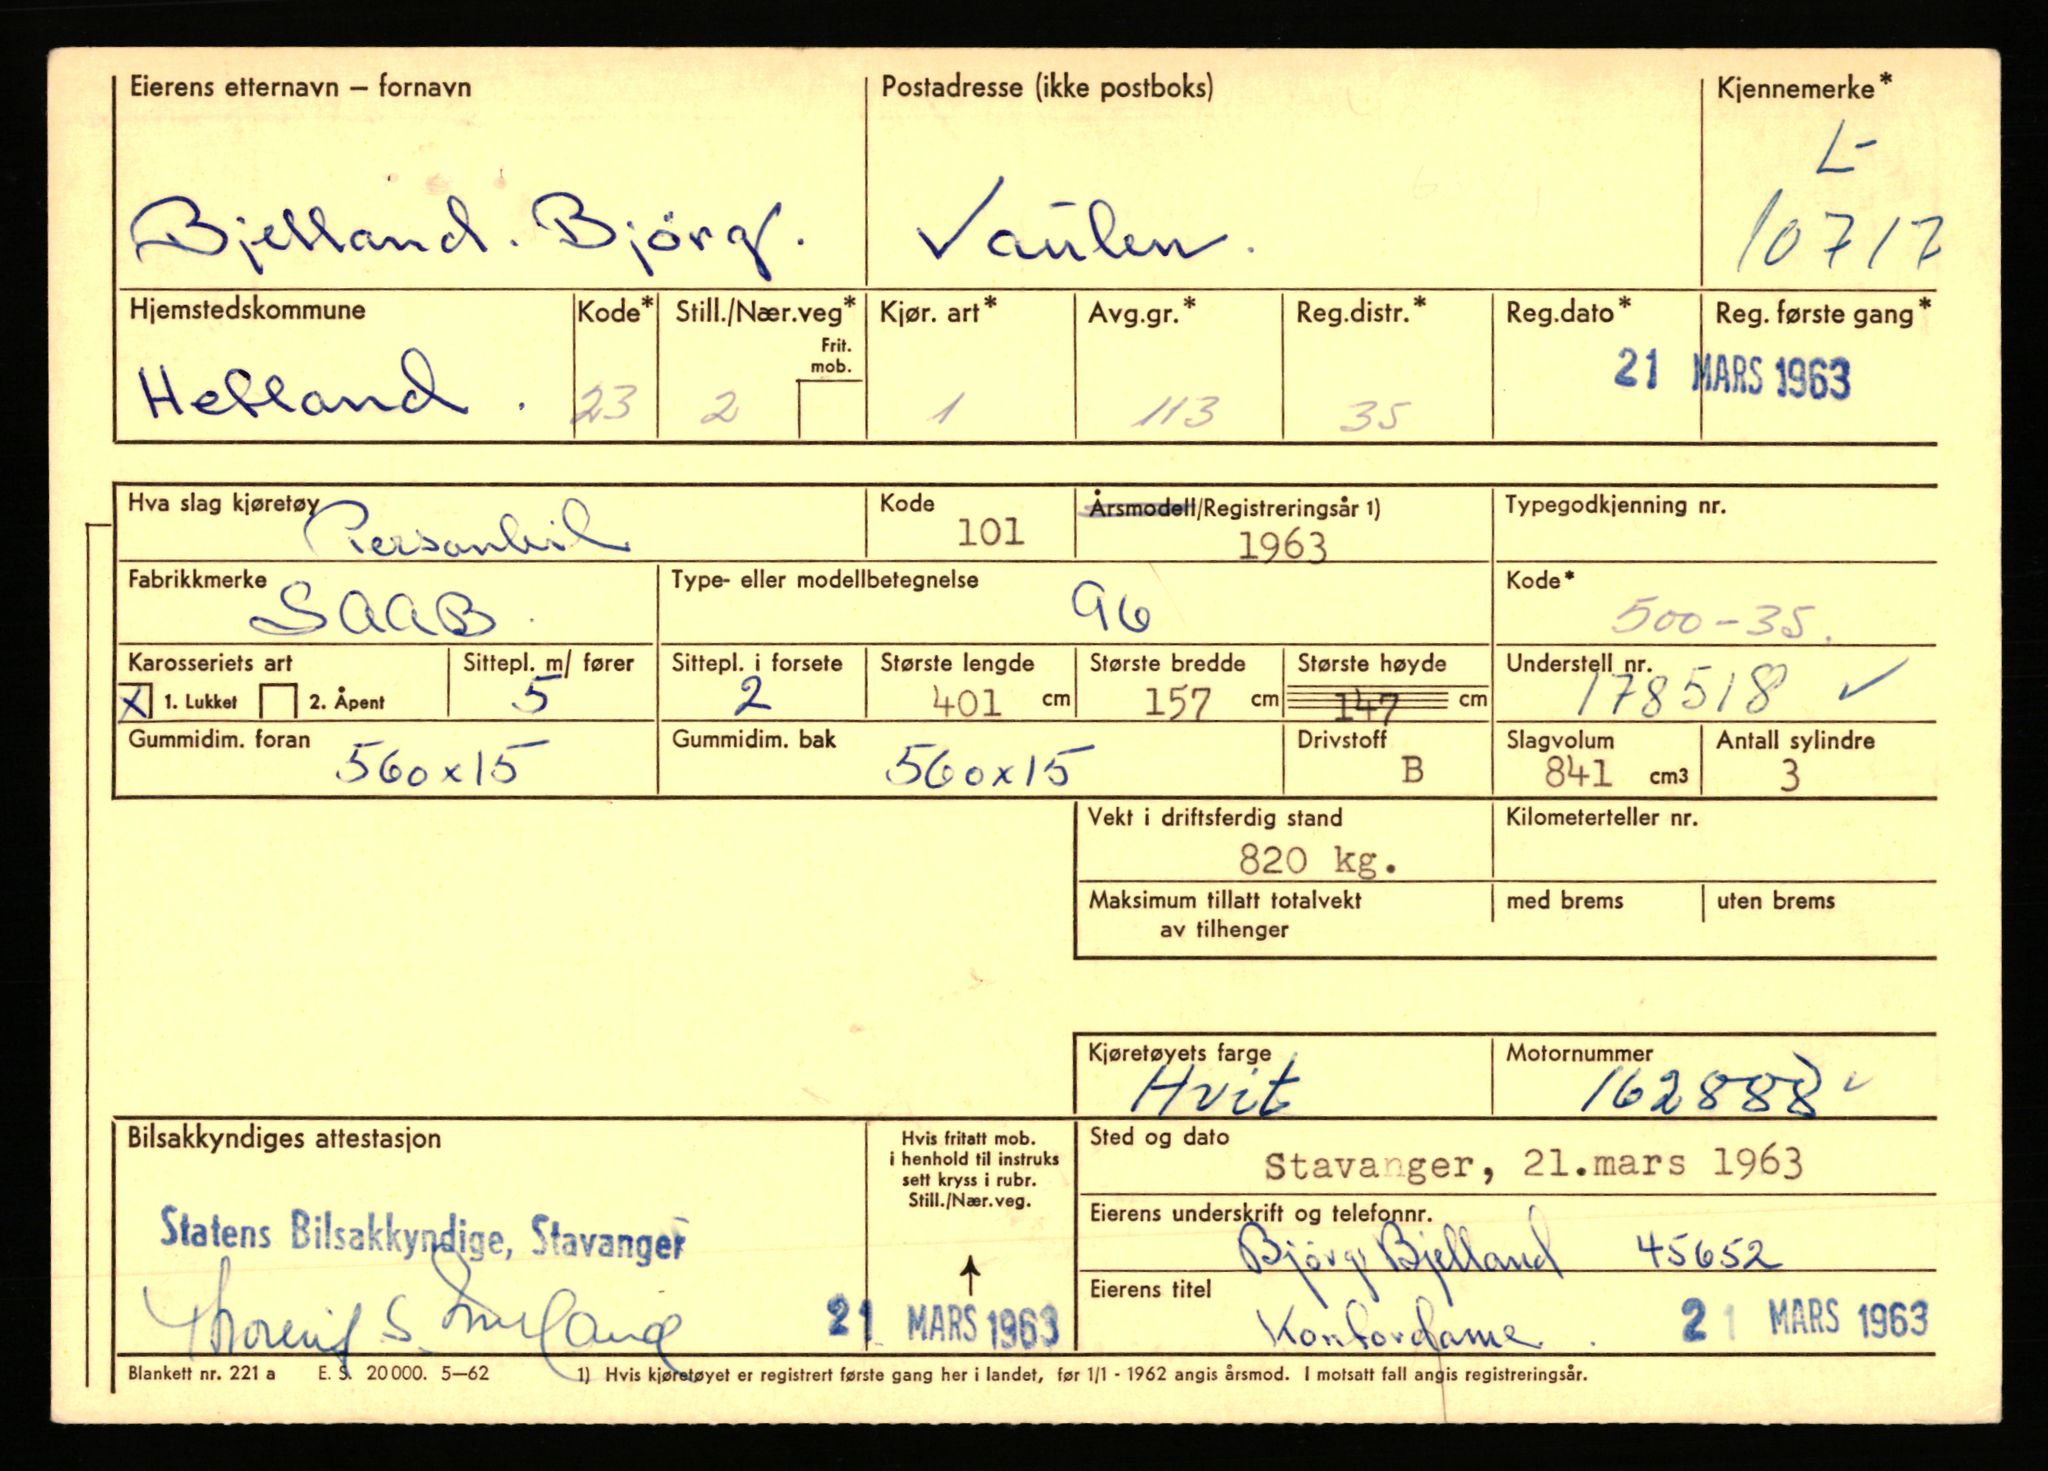 Eierens etternavn – fornavn Postadresse (ikke postboks) Kjennemerke*
L-
Bjelland. Björg. Vaulen. 10717
Hjemstedskommune Kode* Still./Nær.veg* Kjør. art* Avg.gr.* Reg.distr.* Reg.dato* Reg. første gang*
Frit.
mob.
21 MARS 1963
Hetland. 23 2 1 113 35
Hva slag kjøretøy Kode Årsmodell/Registreringsår 1) Typegodkjenning nr.
Personbil 101 1963
Fabrikkmerke Type- eller modellbetegnelse Kode*
SAAB. 96 500-35.
Karosseriets art Sittepl. m/ fører Sittepl. i forsete Største lengde Største bredde Største høyde Understell nr.
X 1. Lukket 2. Åpent 5 2 401 cm 157 cm 147 cm 178518 ✓
Gummidim. foran Gummidim. bak Drivstoff Slagvolum Antall sylindre
560x15 560x15 B 841 cm3 3
Vekt i driftsferdig stand Kilometerteller nr.
820 kg.
Maksimum tillatt totalvekt med brems uten brems
av tilhenger
Kjøretøyets farge Motornummer
Hvit 162888 ✓
Bilsakkyndiges attestasjon Hvis fritatt mob. Sted og dato
i henhold til instruks
sett kryss i rubr.
Still./Nær.veg.
Stavanger, 21.mars 1963
Eierens underskrift og telefonnr.
Statens Bilsakkyndige, Stavanger
Björg Bjelland 45652
Eierens titel
21 MARS 1963
Kontordame. 21 MARS 1963
Blankett nr. 221 a E. S. 20 000. 5–62 1) Hvis kjøretøyet er registrert første gang her i landet, før 1/1 - 1962 angis årsmod. I motsatt fall angis registreringsår.